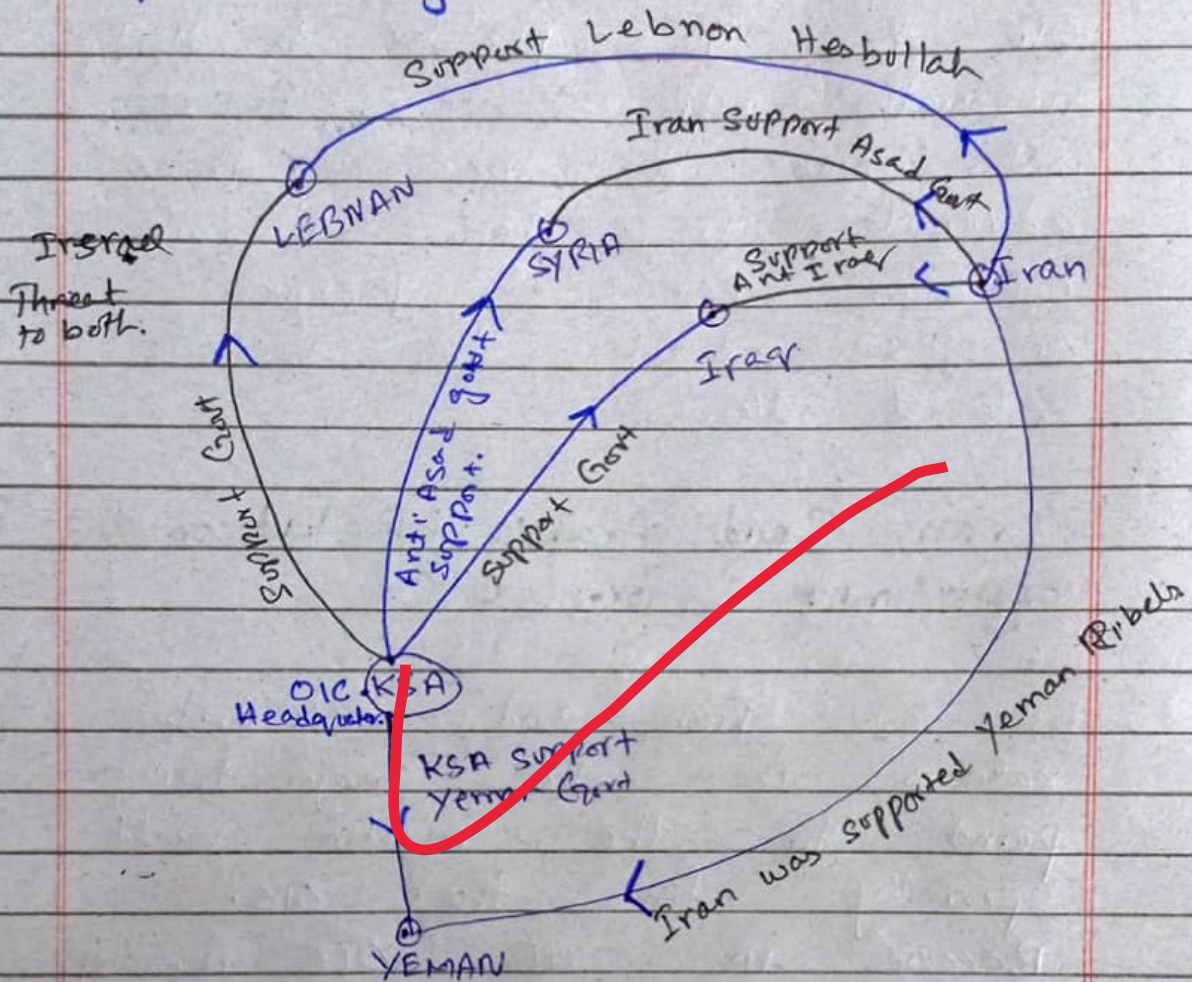 Support Lebnon Hesbullah
Iran Support Asad Govt
LEBNAN
Isreal
SYRIA
Support
Ant Iraq
Iran
Threat
to both.
Iraqr
Support Govt
Anti Asad govt
Support.
Support Govt
OIC KSA
Headquater.
KSA support
Yemn Govt
Iran was supported Yeman Ribels
YEMAN